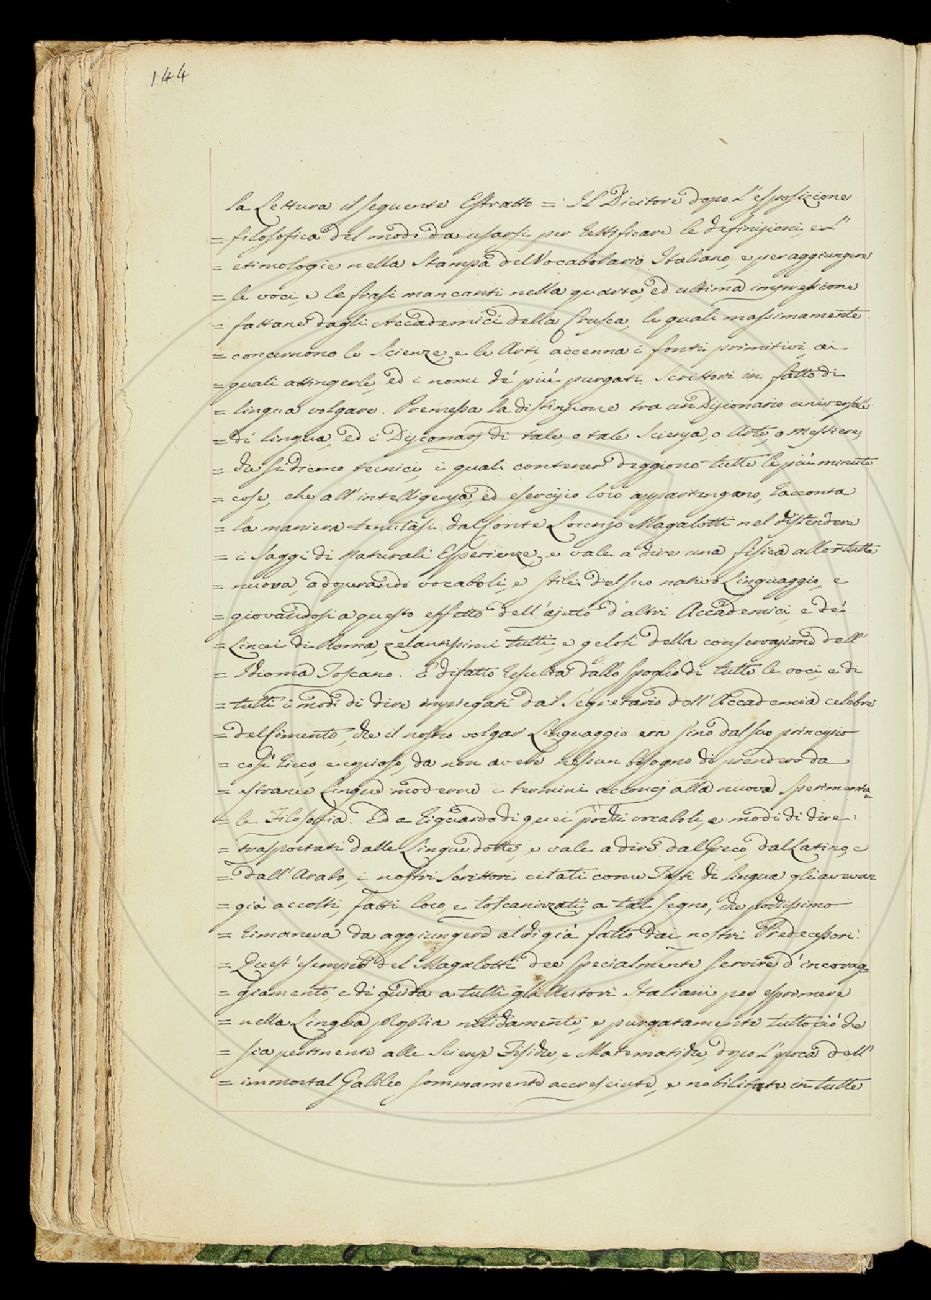 144
la Lettura il seguente Estratto = Il Dicitore dopo l'esposizione
= filosofica del modo da usarsi per rettificare le definizioni, e l'
= etimologie nella stampa del Vocabolario Italiano, e per aggiungere
= le voci e le frasi mancanti nella quarta, ed ultima impressione
= fattane dagli Accademici della Crusca, le quali massimamente
= concernono le Scienze, e le Arti accenna i fonti primitivi, ai
= quali attingerle, ed i nomi de' più purgati Scrittori in fatto di
= lingua volgare. Premessa la distinzione tra un Dizionario universale
= di lingua, ed i Dizionarj di tale, o tale Scienza, o Arte, o Mestiere,
= che si dicono tecnici, i quali contener deggiono tutte le più minute
= cose, che all'intelligenza, ed esercizio loro appartengano, racconta
= la maniera tenutasi dal Conte Lorenzo Magalotti nel distendere
= i Saggi di Naturali Esperienze, e vale a dire una fisica allor tutta
= nuova, adoperando vocaboli, e stile del suo nativo Linguaggio, e
= giovandosi a questo effetto dell'ajuto d'altri Accademici, e de'
= Lincei di Roma, zelantissimi tutti, e gelosi della conservazione dell'
= Idioma Toscano. E difatto resulta dallo spoglio di tutte le voci, e di
= tutti i modi di dire impiegati dal Segretario dell'Accademia celebre
= del Cimento, che il nostro volgar Linguaggio era sino dal suo principio
= così ricco, e copioso, da non avere nessun bisogno di prendere da
= straniere Lingue moderne i termini acconcj alla nuova Sperimenta=
= le Filosofia. Ed a riguardo di quei pochi vocaboli, e modi di dire
= trasportati dalle Lingue dotte, e vale a dire dal Greco, dal Latino, e
= dall'Arabo, i nostri Scrittori citati come Testi di lingua gli avevan
= già accolti, fatti loro, e toscanizzati, a tal segno, che pochissimo
= rimaneva da aggiungere al di già fatto dai nostri Predecessori.
= Quest'esempio del Magalotti dee specialmente servire d'incorag=
= giamento, e di guida a tutti gli Autori Italiani per esprimere
= nella Lingua propria nitidamente, e purgatamente tutto ciò che
= sia pertinente alle Scienze Fisiche, e Matematiche, dopo l'epoca dell'
= immortal Galileo sommamente accresciute, e nobilitate in tutte